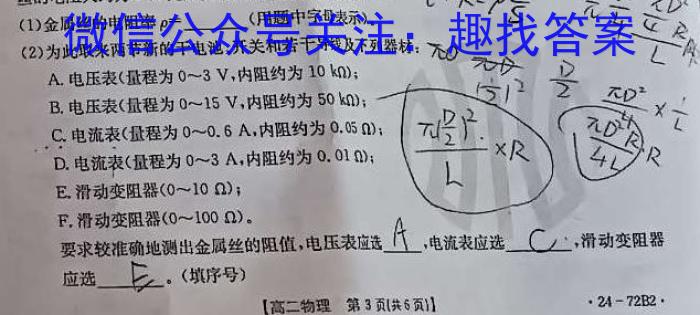 (1)金属丝的电阻率ρ=____(用题中字母表示)。
微信公众号关注：趣找答案
(2)为此取来两节新的干电池、开关和若干导线及下列器材：
A.电压表(量程为0~3 V,内阻约为10 kΩ);
B.电压表(量程为0~15 V,内阻约为50 kΩ);
C.电流表(量程为0~0.6 A,内阻约为0.05 Ω);
D.电流表(量程为0~3 A,内阻约为0.01 Ω);
E.滑动变阻器(0~10 Ω);
F.滑动变阻器(0~100 Ω)。
要求较准确地测出金属丝的阻值,电压表应选 A ,电流表应选 C ,滑动变阻器
应选 E 。(填序号)
π(D/2)²/L ×R
πD²R/4L
D/2
πD²/4 × 1/L
【高二物理 第3页(共6页)】
·24-72B2·